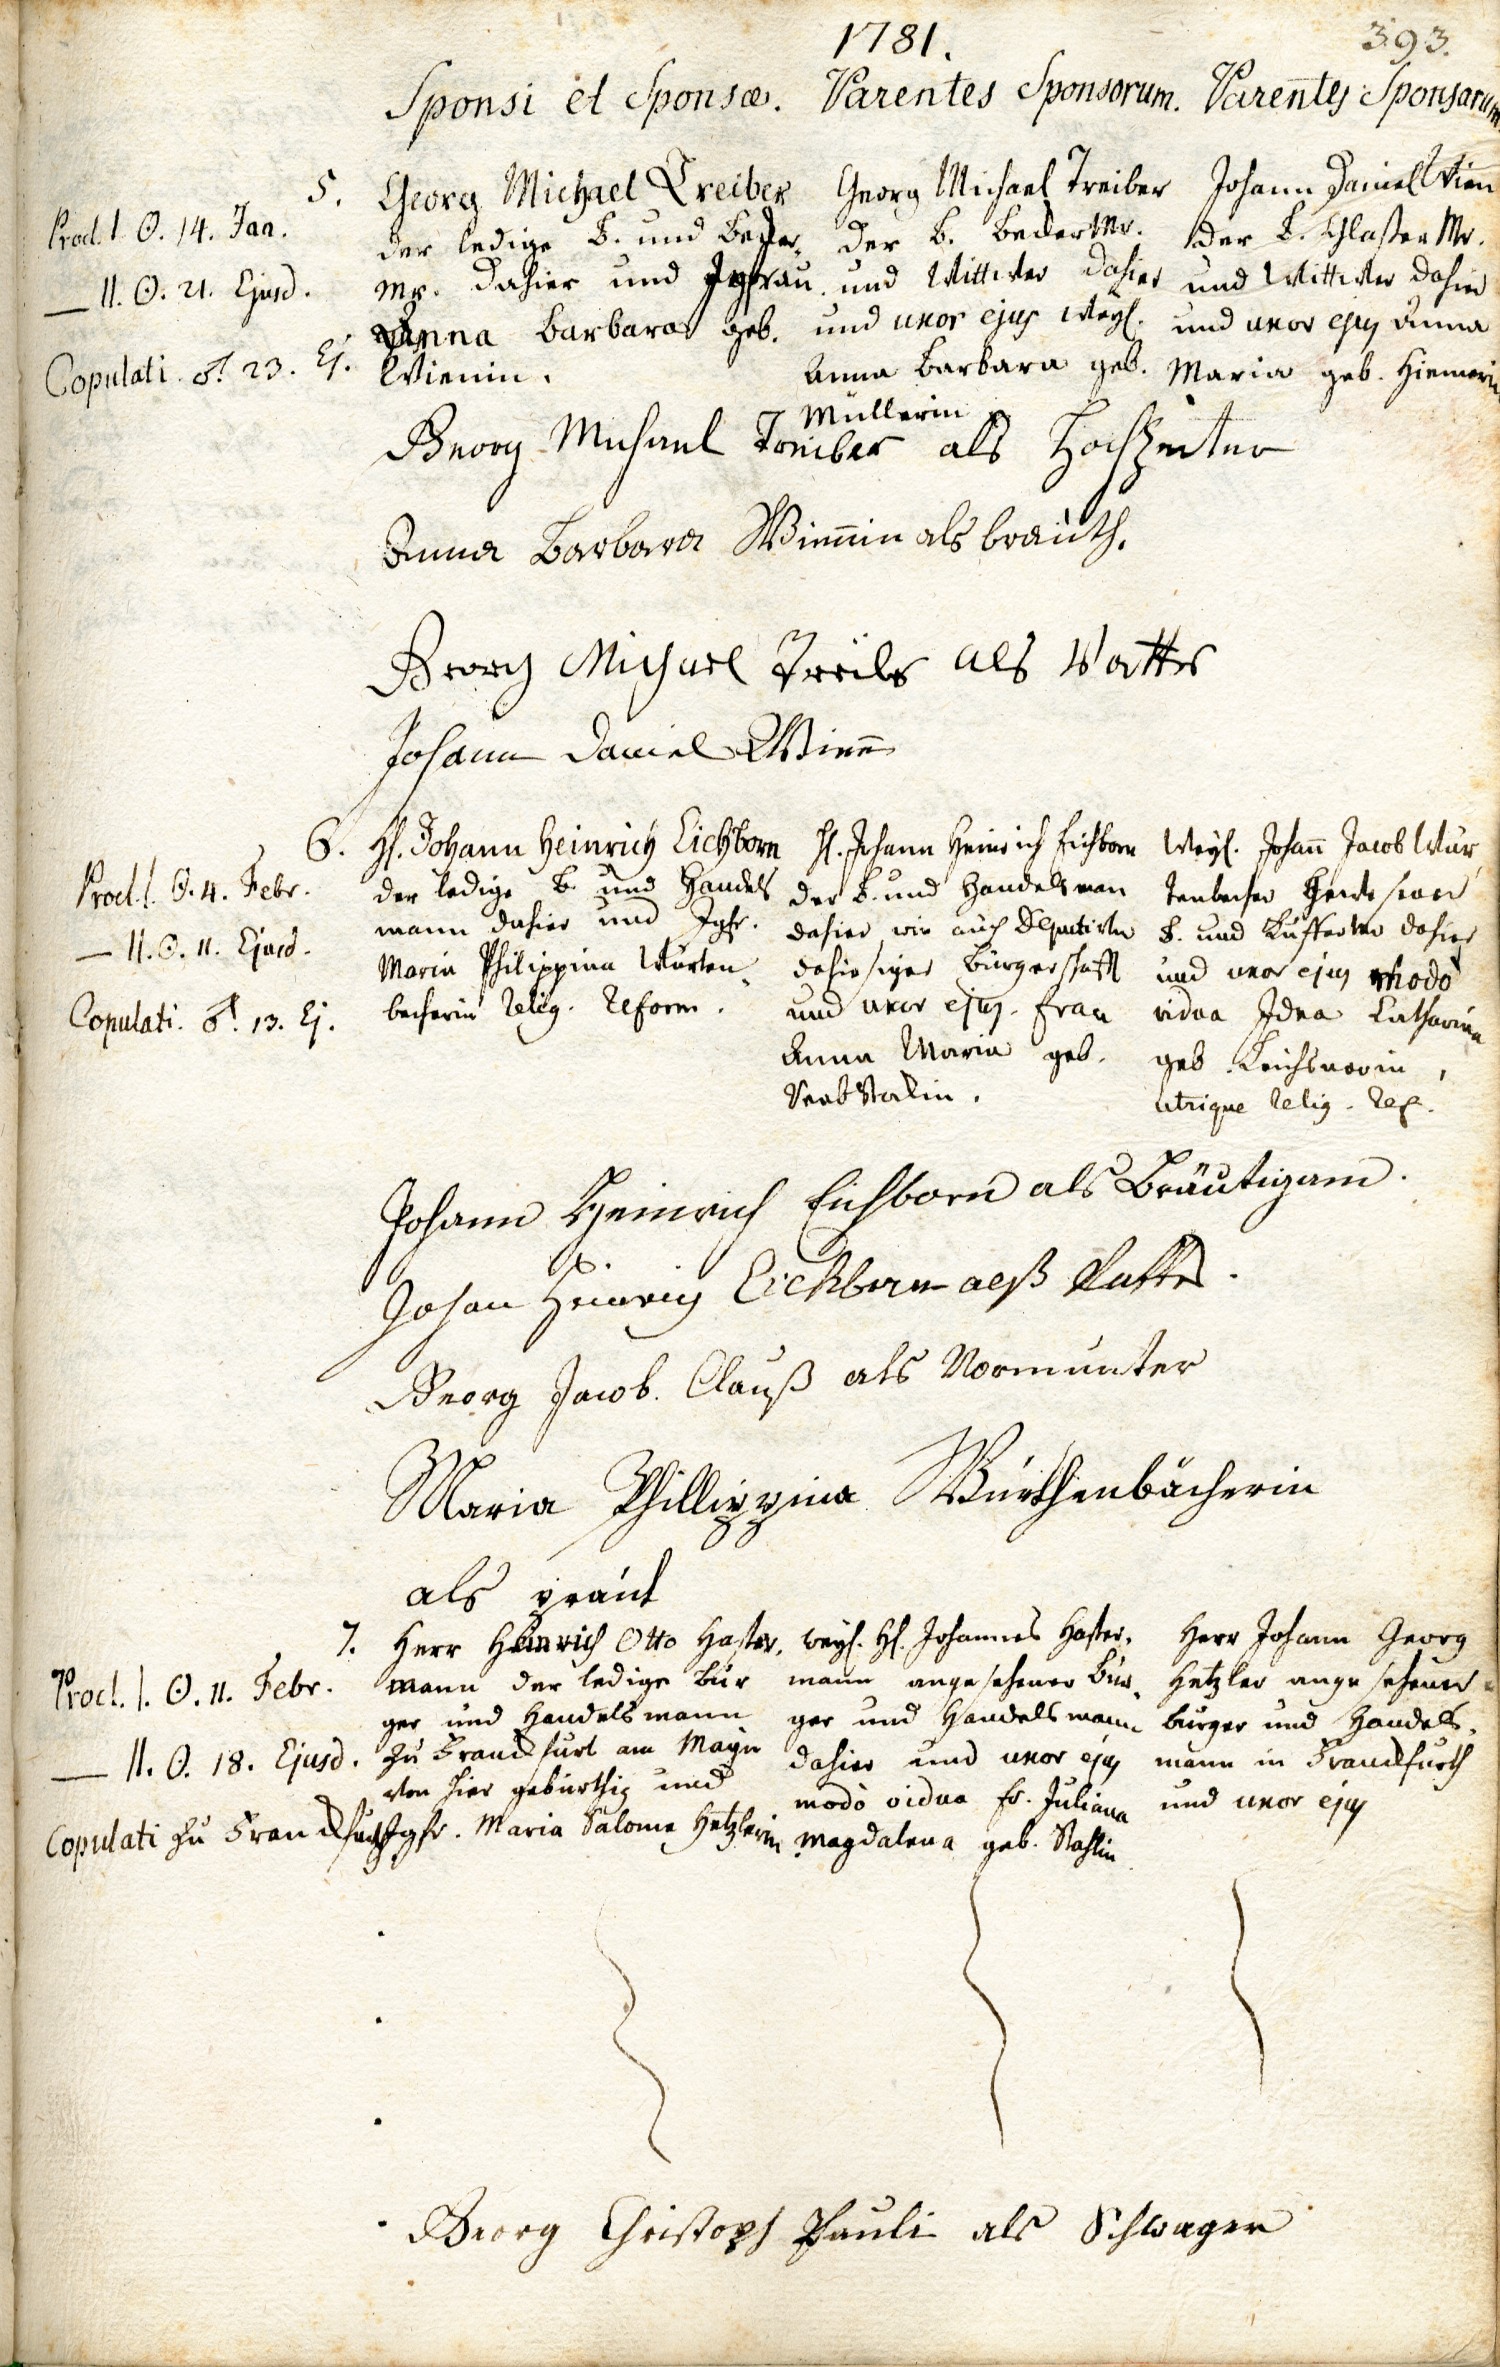 1781.
393.
Sponsi et Sponsæ. Parentes Sponsorum. Parentes Sponsarum
5.
Procl. I. ☉. 14. Jan.
— II. ☉. 21. Ejusd.
Copulati. ♂. 23. Ej.
Georg Michael Treiber
der ledige B. und Becker
Mr. dahier und Jgfrau
Anna Barbara geb.
Wienin.
Georg Michael Treiber
der B. Becker Mr.
und Wittwer dahier
und uxor ejus weyl.
Anna Barbara geb.
Müllerin
Johann Daniel Wien
der B. Glaser Mr.
und Wittwer dahier
und uxor ejus Anna
Maria geb. Hiemerin
Georg Michael Treiber als Hochzeiter
Anna Barbara Wienin als brauth.
Georg Michael Treiber als Vatter
Johann Daniel Wien
6.
Procl. I. ☉. 4. Febr.
— II. ☉. 11. Ejusd.
Copulati. ♂. 13. Ej.
H. Johann Heinrich Eichborn
der ledige B. und Handels
mann dahier und Jgfr.
Maria Philippina Würten-
becherin Relig. Reform.
H. Johann Heinrich Eichborn
der B. und Handelsmann
dahier wie auch Deputirter
dahiesiger Bürgerschafft
und uxor ejus. Frau
Anna Maria geb.
Weyl. Johann Jacob Wür
tenbecher
B. und Küffer dahier
und uxor ejus modo
vidua Catharina
geb.
utrique Relig. Ref.
Johann Heinrich Eichborn als Bräutigam.
Johan Heinrich Eichborn alß Vatter.
Georg Jacob. Clauß als Vormunter
Maria Phillippina Würthenbächerin
als praut
7.
Procl. I. ☉. 11. Febr.
— II. ☉. 18. Ejusd.
Copulati zu Franckfurth
Herr Heinrich Otto Haster-
mann der ledige Bür
ger und Handelsmann
zu Franckfurt am Mayn
von hier gebürthig und
Jgfr. Maria Salome Hetzlerin
weyl. H. Johannes Haster-
mann angesehener Bür-
ger und Handelsmann
dahier und uxor ejus
modo vidua Fr. Juliana
Magdalena geb. Stahlin
Herr Johann Georg
Hetzler angesehener
burger und Handels-
mann in Franckfurth
und uxor ejus
Georg Christoph Pauli als Schwager